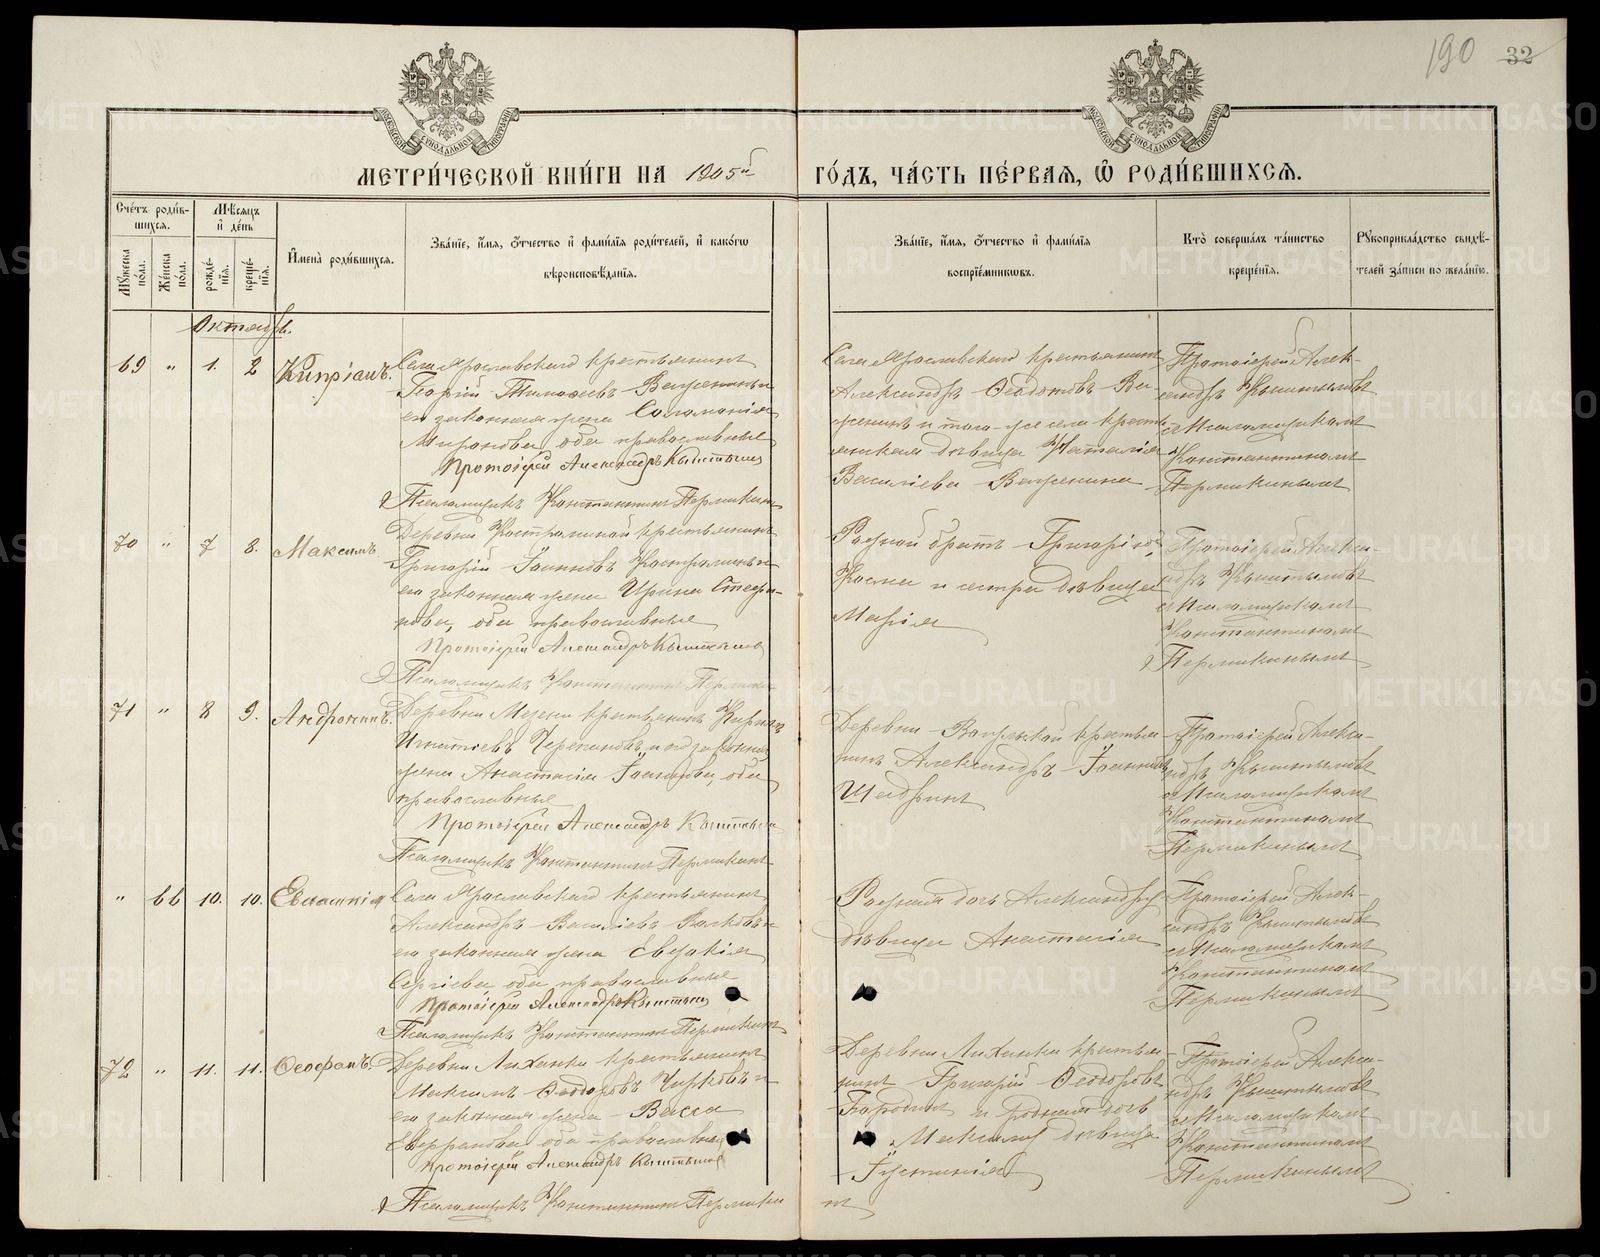 190 32
МЕТРИ́ЧЕСКОЙ КНИ́ГИ НА 1905й ГО́ДЪ, ЧА́СТЬ ПЕ́РВАѦ, Ѽ РОДИ́ВШИХСѦ.
Сче́тъ роди́в-
шихся.
Мѣсяцъ
и҆ де́нь
Мꙋ́жеска по́ла.
Же́нска по́ла.
рожде́нїя.
креще́нїя.
И҆мена̀ роди́вшихся.
Зва́нїе, и҆́мя, ѻ҆́тчество и҆ фами́лїя роди́телей, и҆ како́гѡ
вѣроисповѣ́данїя.
Зва́нїе, и҆́мя, ѻ҆́тчество и҆ фами́лїя
воспрїе́мникѡвъ.
Кто̀ соверша́лъ та́инство
креще́нїя.
Рꙋкоприкла́дство свидѣ́-
телей за́писи по жела́нїю.
Октябрь.
69 " 1. 2 Кипріанъ.
Села Ярославскаго крестьянинъ
Георгій Тимофеевъ Важенинъ и
его законная жена Саломонія
Миронова, оба православные
Протоіерей Александръ Кыштымов
Псаломщикъ Константинъ Пермикин
Села Ярославскаго крестьянинъ
Александръ Ѳедотовъ Ва-
женинъ и того-же села кресть-
янская дѣвица Наталія
Василіева Важенина
Протоіерей Алек-
сандръ Кыштымовъ
съ Псаломщикомъ
Константиномъ
Пермикинымъ
70 " 7 8. Максимъ
Деревни Костроминой крестьянинъ
Григорій Іоанновъ Костроминъ и
его законная жена Ирина Стефа-
нова, оба православные
Протоіерей Александръ Кыштымов
Псаломщикъ Константинъ Пермики
Родной братъ Григорію
Косма и сестра дѣвица
Марія
Протоіерей Алекса-
ндръ Кыштымовъ
съ Псаломщикомъ
Константиномъ
Пермикинымъ
71 " 8 9. Андроникъ.
Деревни Мезени крестьянинъ
Игнатіевъ Черепановъ и его законная
жена Анастасія Іоаннова, оба
православные
Протоіерей Александръ Кыштымов
Псаломщикъ Константинъ Пермикинъ
Деревни крестья-
нинъ Александръ Іоанновъ
Щадринъ
Протоіерей Алекса-
ндръ Кыштымовъ
съ Псаломщикомъ
Константиномъ
Пермикинымъ
" 66 10. 10. Евлампія
Села Ярославскаго крестьянинъ
Александръ Василіевъ Волковъ и
его законная жена Евдокія
Сергіева, оба православные
Протоіерей Александръ Кыштымов
Псаломщикъ Константинъ Пермикинъ
Родная дочь Александру
дѣвица Анастасія
Протоіерей Алек-
сандръ Кыштымовъ
съ Псаломщикомъ
Константиномъ
Пермикинымъ
72 " 11. 11. Ѳеофанъ.
Деревни Лиханки крестьянинъ
Максимъ Ѳеодоровъ Чирковъ и
его законная жена Васса
оба православные
Протоіерей Александръ Кыштымов
Псаломщикъ Константинъ Пермики
Деревни Лиханки крестья-
нинъ Григорій Ѳеодоровъ
Бородинъ и родная дочь
Максиму дѣвица
Іустинія
Протоіерей Алекса-
ндръ Кыштымовъ
съ Псаломщикомъ
Константиномъ
Пермикинымъ
METRIKI.GASO-URAL.RU